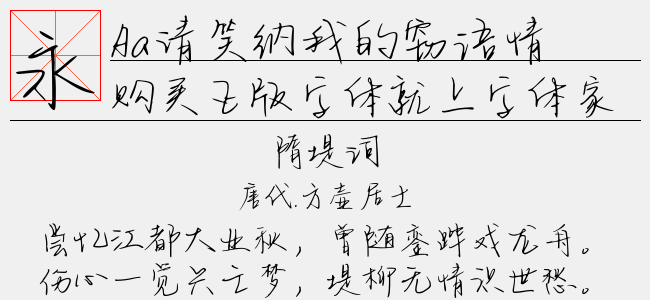 永
Aa请笑纳我的窃语情
购买正版字体就上字体家
隋堤词
唐代.方壶居士
尝忆江都大业秋，曾随銮跸戏龙舟。
伤心一觉兴亡梦，堤柳无情识世愁。